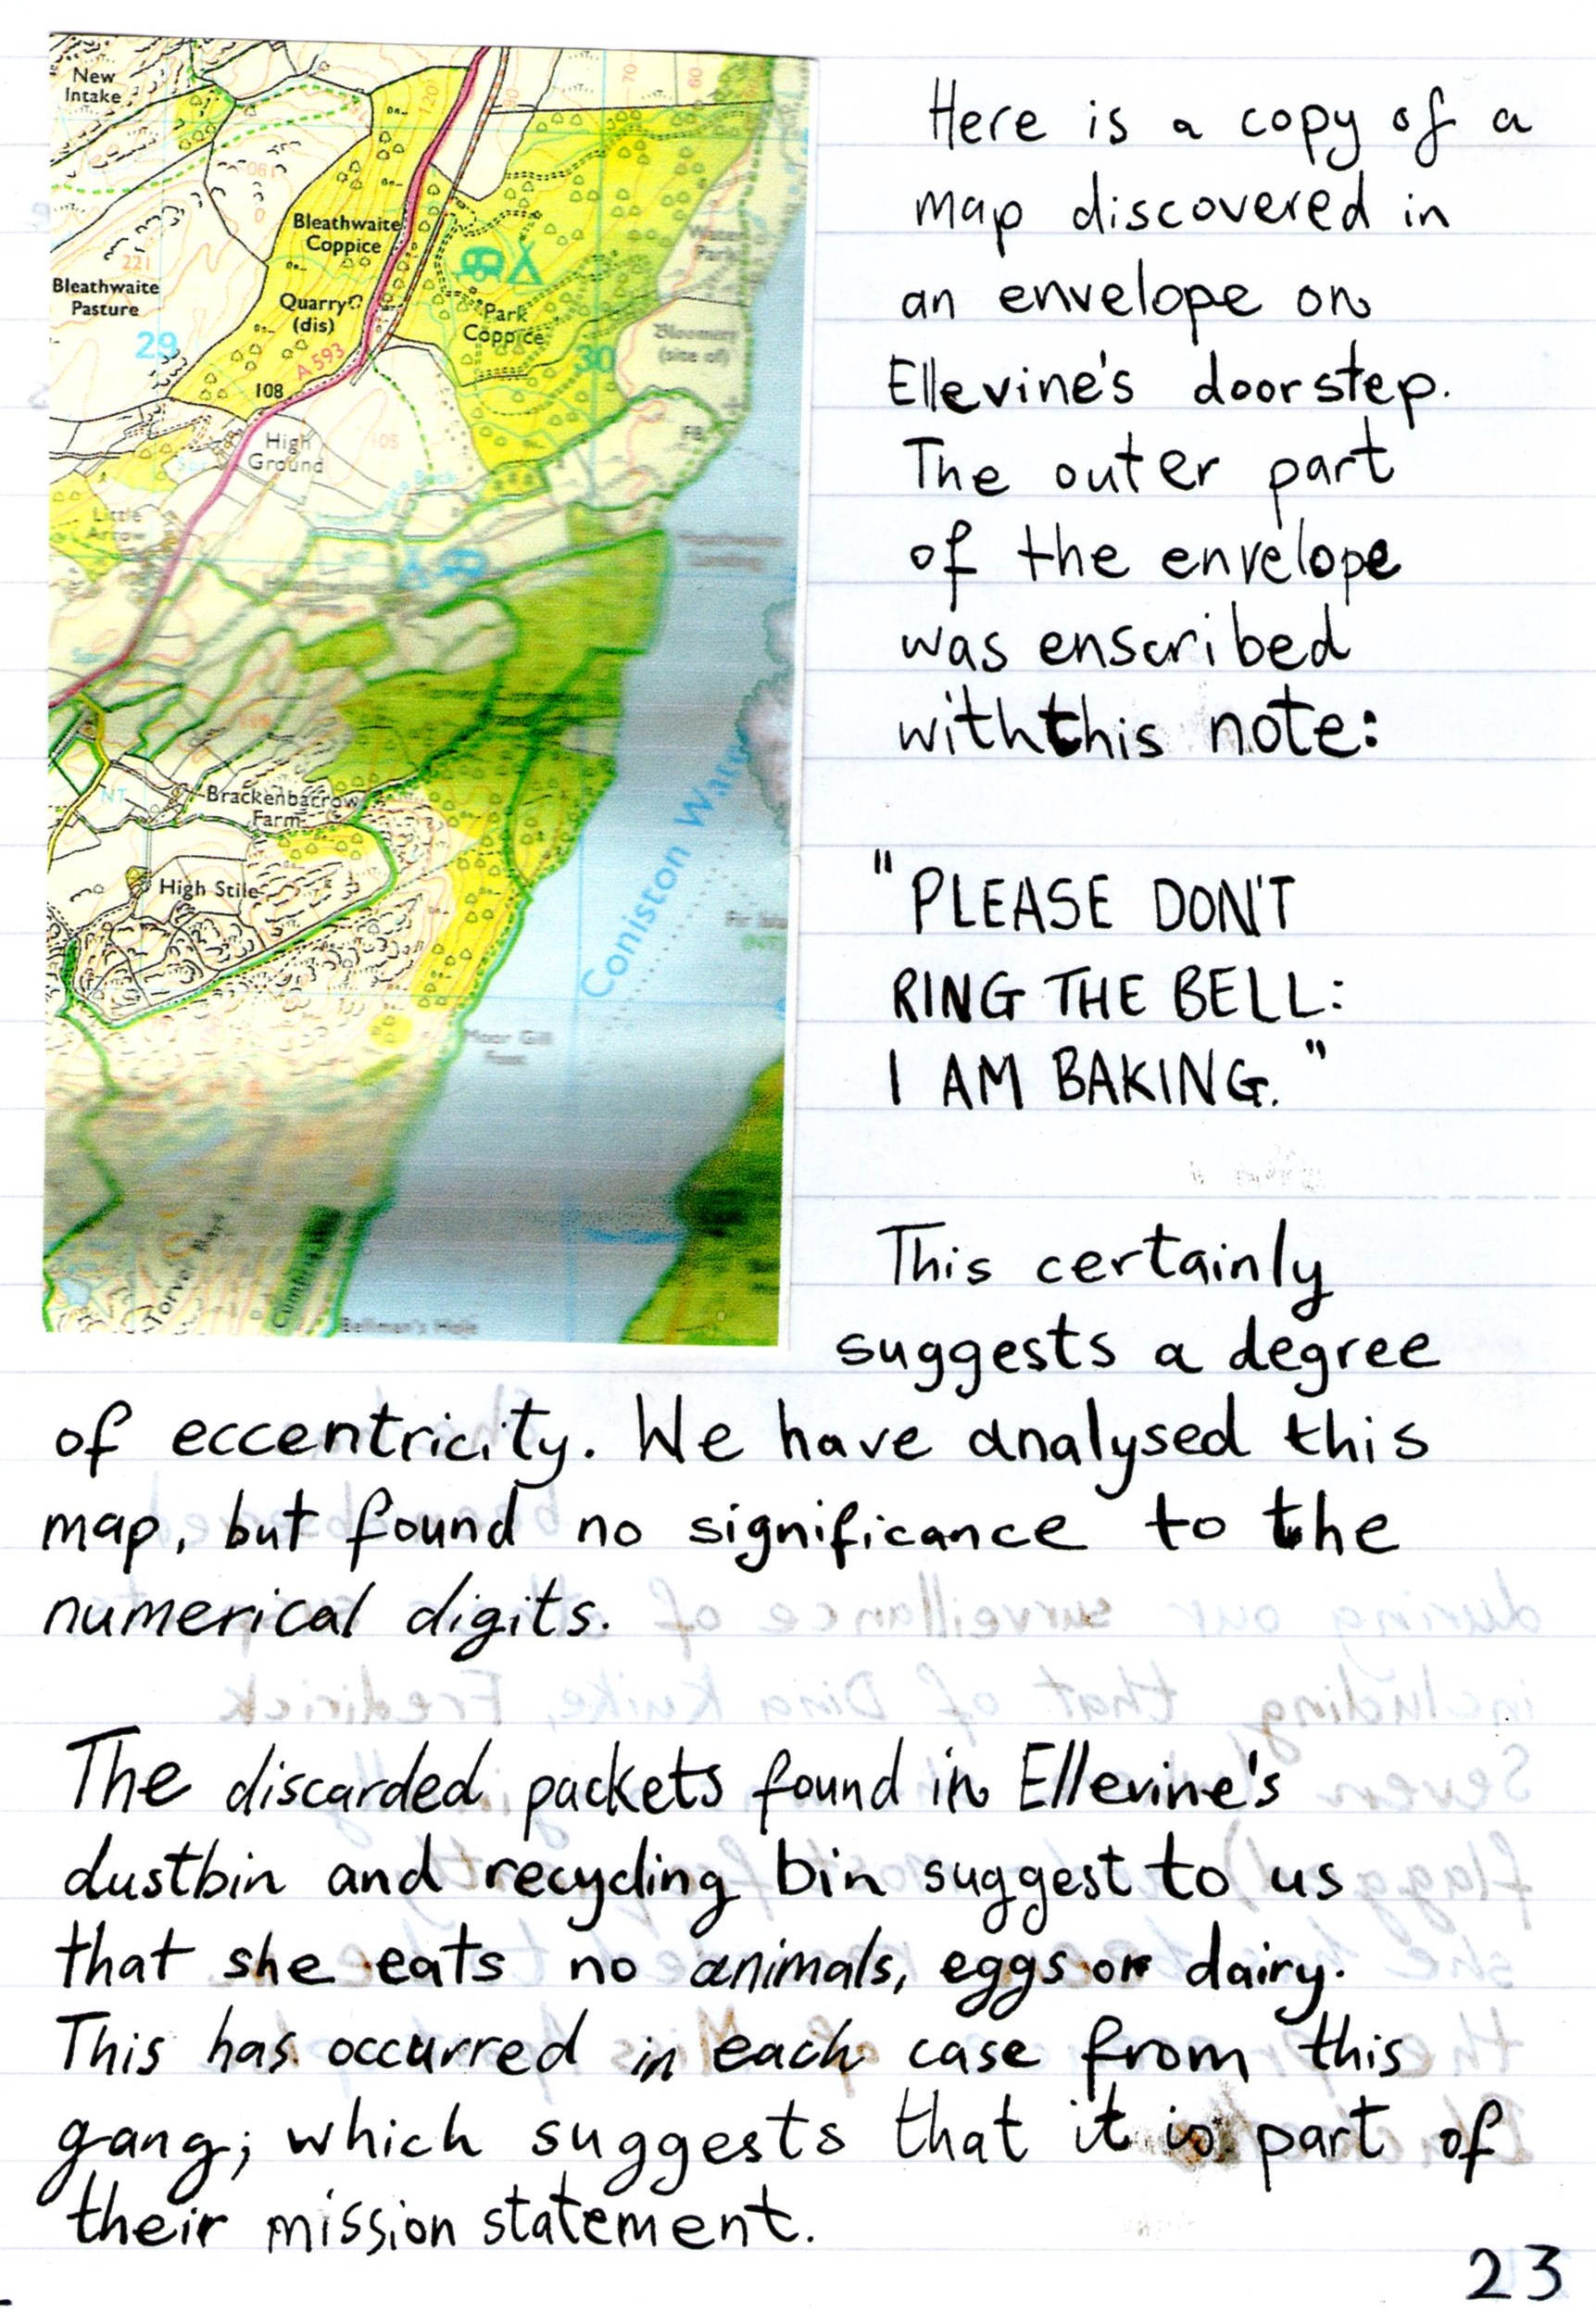 New
Intake
Bleathwaite
Coppice
221
Bleathwaite
Pasture
29
Quarry
(dis)
Park
Coppice
30
A 593
108
High
Ground
105
FB
Little
Arrow
Water
Park
Bloomery
(site of)
120
90
70
60
NT
Brackenbarrow
Farm
High Stile
Coniston Water
Moor Gill
Foot
Torver
Cumbria Way
Here is a copy of a
map discovered in
an envelope on
Ellevine's doorstep.
The outer part
of the envelope
was enscribed
with this note:
"PLEASE DON'T
RING THE BELL:
I AM BAKING."
This certainly
suggests a degree
of eccentricity. We have analysed this
map, but found no significance to the
numerical digits.
The discarded packets found in Ellevine's
dustbin and recycling bin suggest to us
that she eats no animals, eggs or dairy.
This has occurred in each case from this
gang; which suggests that it is part of
their mission statement.
23